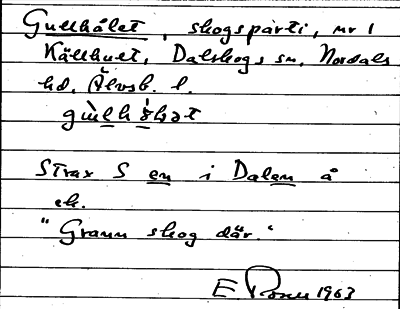 Gullhålet, skogsparti, nr 1
Källhult, Dalskogs sn, Nordals
hd, Älvsb. l.
Strax S en i Dalen å
ek.
"Grann skog där."
E Rosen 1963